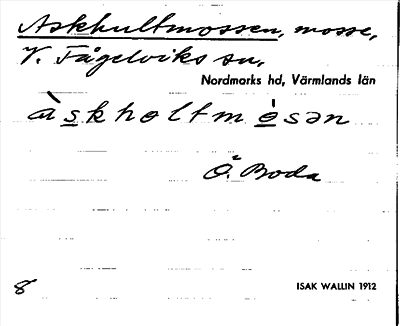 Askhultmossen, mosse,
V. Fågelviks sn,
Nordmarks hd, Värmlands län
àskholtmòsən
Ö. Boda
8
ISAK WALLIN 1912